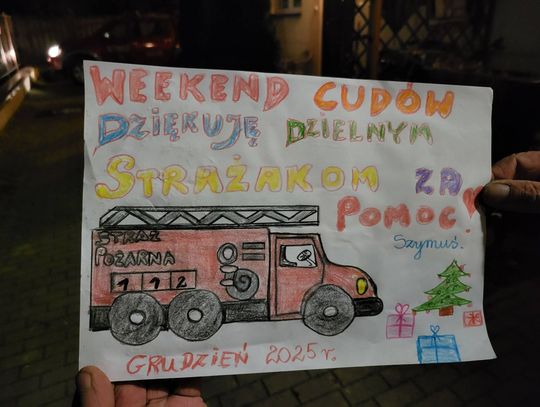 WEEKEND CUDÓW
DZIĘKUJĘ DZIELNYM
STRAŻAKOM ZA
POMOC!
Szymuś.
STRAŻ
POŻARNA
112
GRUDZIEŃ 2025r.